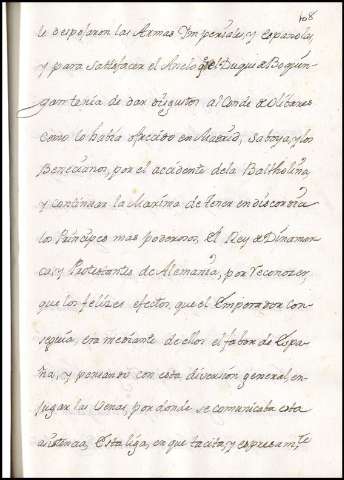 108
le despojaron las Armas Ymperiales, y españolas,
y para satisfacer el Anelo q̃ el Duque de Boquin-
gan tenia de dar disgustos al Conde de Olibares
como lo había ofrecido en Madrid, Saboya, y los
Benecianos, por el accidente dela Balthelina
y continuar la Maxima de tener en discordia
los Principes mas poderosos, El Rey de Dinamar-
ca, y Protestantes de Alemania, por reconozer,
que los felizes efectos, que el Emperador con-
seguia, era mediante de ellos el fabor de Espa-
ña, y pensando con esta diversion general, en-
jugar las venas, por donde se comunicaba esta
asistencia, Esta liga, en que tacita, y expresamte